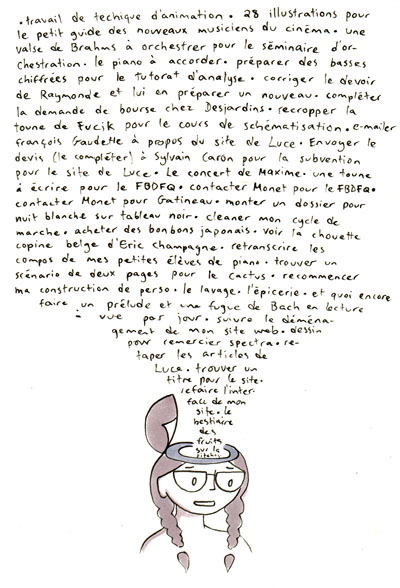 .travail de techique d'animation. 28 illustrations pour
le petit guide des nouveaux musiciens du cinéma. une
valse de Brahms à orchestrer pour le séminaire d'or-
chestration. le piano à accorder. préparer des basses
chiffrées pour le tutorat d'analyse. corriger le devoir
de Raymonde et lui en préparer un nouveau. compléter
la demande de bourse chez Desjardins. recropper la
toune de Fucik pour le cours de schématisation. e-mailer
françois Gaudette à propos du site de Luce. Envoyer le
devis (le compléter) à Sylvain Caron pour la subvention
pour le site de Luce. Le concert de Maxime. une toune
à écrire pour le FBDFQ. contacter Monet pour le FBDFQ.
contacter Monet pour Gatineau. monter un dossier pour
nuit blanche sur tableau noir. cleaner mon cycle de
marche. acheter des bonbons japonais. voir la chouette
copine belge d'Eric Champagne. retranscrire les
compos de mes petites élèves de piano. trouver un
scénario de deux pages pour le Cactus. recommencer
ma construction de perso. le lavage. l'épicerie. et quoi encore
faire un prélude et une fugue de Bach en lecture
à vue par jour. suivre le déména-
gement de mon site web. dessin
pour remercier spectra. re-
taper les articles de
Luce. trouver un
titre pour le site.
refaire l'inter-
face de mon
site. le
bestiaire
des
fruits
sur le